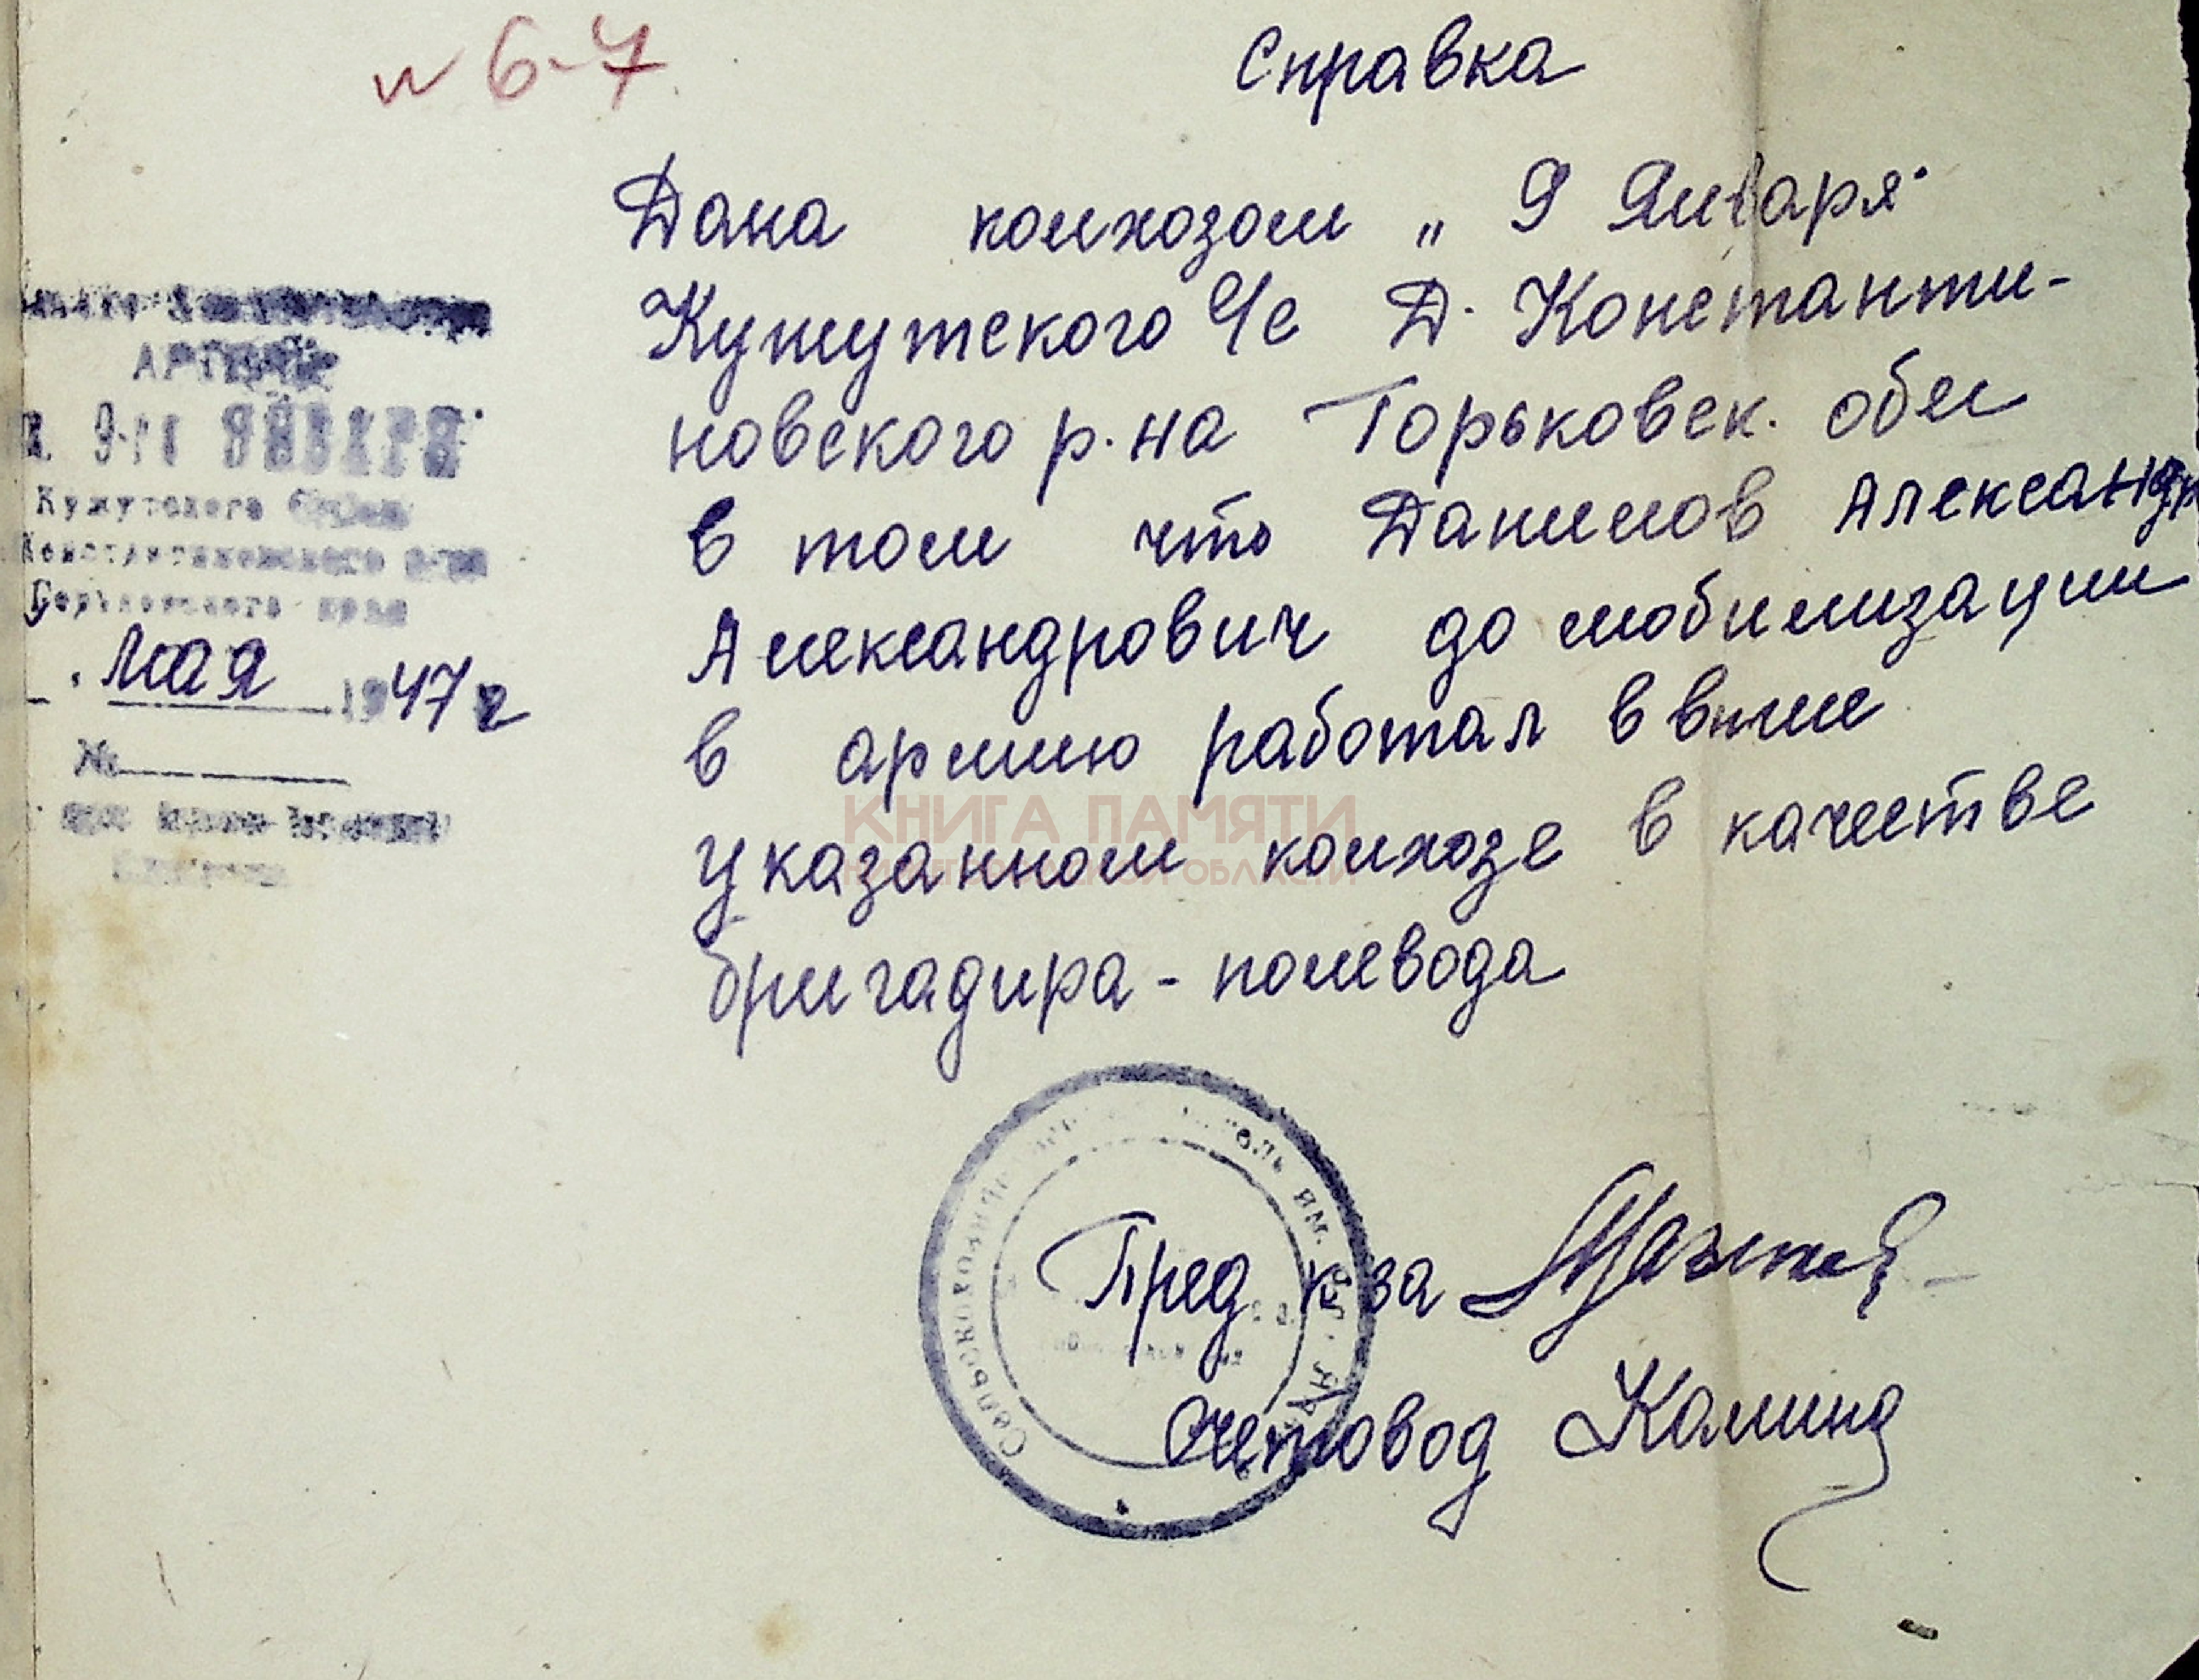 № 6-7
Справка
Дана колхозом „ 9 Января"
Кужутского С/с Д. Константи-
новского р-на Горьковск. обл
в том что Данилов Александр
Александрович до мобилизации
в армию работал в выше
указанном колхозе в качестве
бригадира - полевода
АРТЕЛЬ
9-ГО ЯНВАРЯ
Кужутского
Константиновского р-на
Горьковского края
мая 1947 г
№
КНИГА ПАМЯТИ
НИЖЕГОРОДСКОЙ ОБЛАСТИ
Сельскохозяйс артель им.
Пред к-за
Счетовод Калина